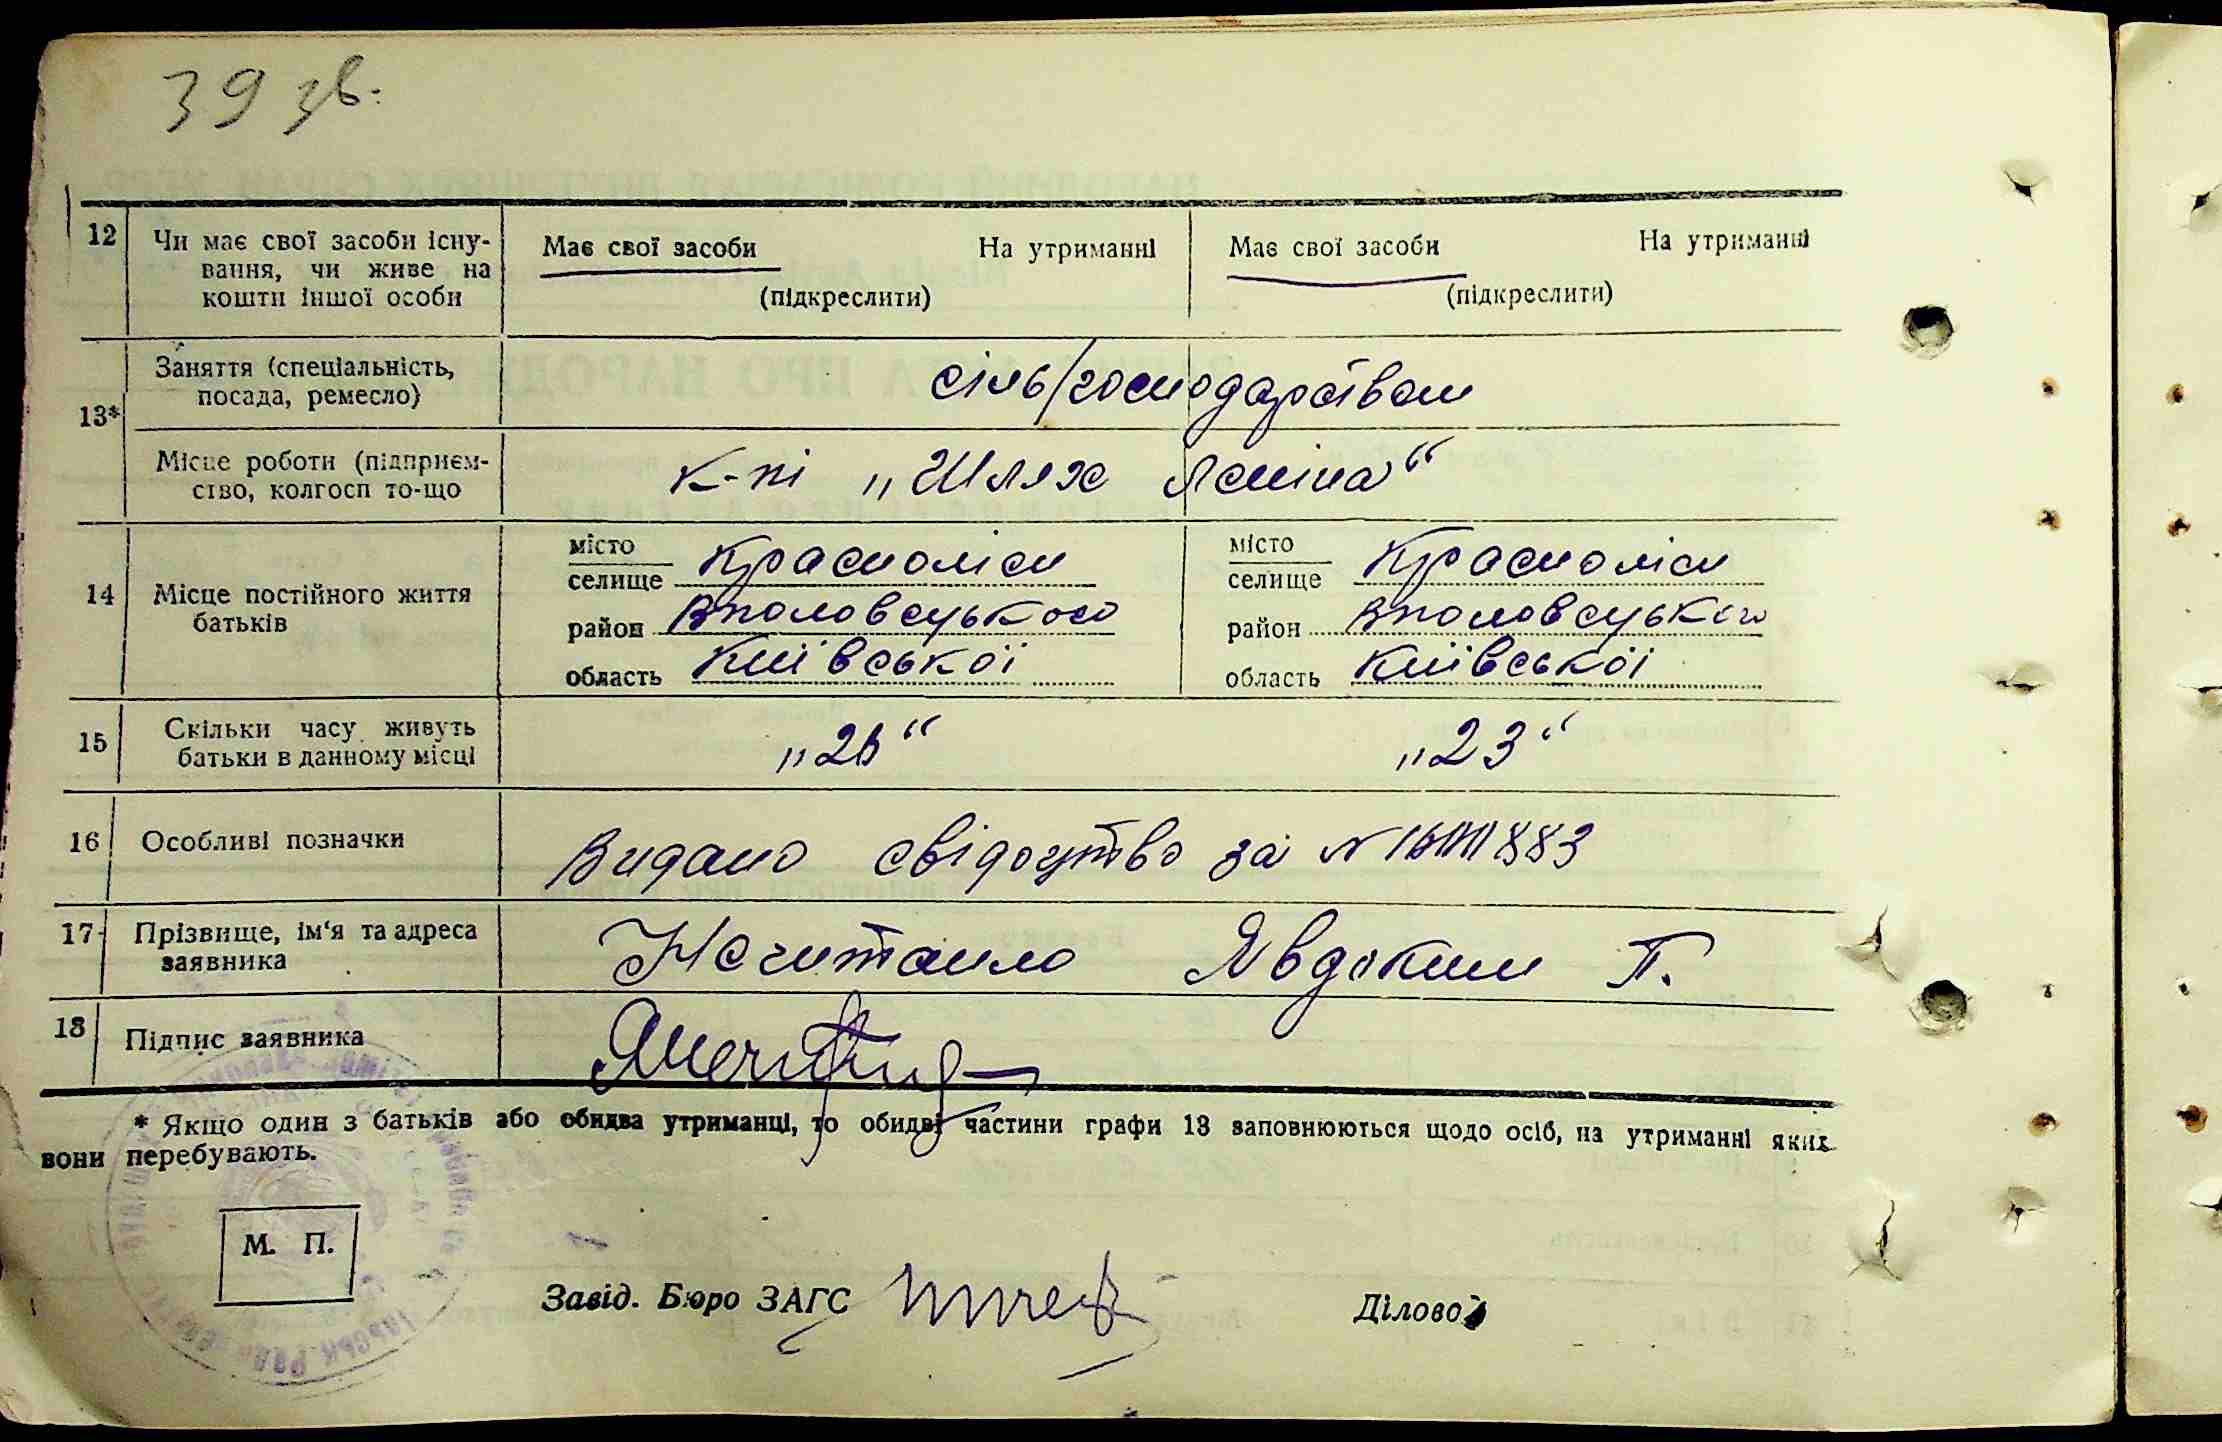 39 зв.
12 Чи має свої засоби існу- Має свої засоби На утриманні Має свої засоби На утриманні
вання, чи живе на
кошти іншої особи (підкреслити) (підкреслити)
Заняття (спеціальність,
посада, ремесло) сіль/господарством
13*
Місце роботи (підприєм- к-пі „Шлях Леніна“
ство, колгосп то-що
місто Красноліси місто Красноліси
селище селище
14 Місце постійного життя
батьків район район
область Київської область Київської
15 Скільки часу живуть
батьки в данному місці „23“
16 Особливі позначки Видано свідоцтво за №
17 Прізвище, ім‘я та адреса Нечитайло Явдоким П.
заявника
18 Підпис заявника
* Якщо один з батьків або обидва утриманці, то обидві частини графи 13 заповнюються щодо осіб, на утриманні яких
вони перебувають.
М. П.
Завід. Бюро ЗАГС Діловод